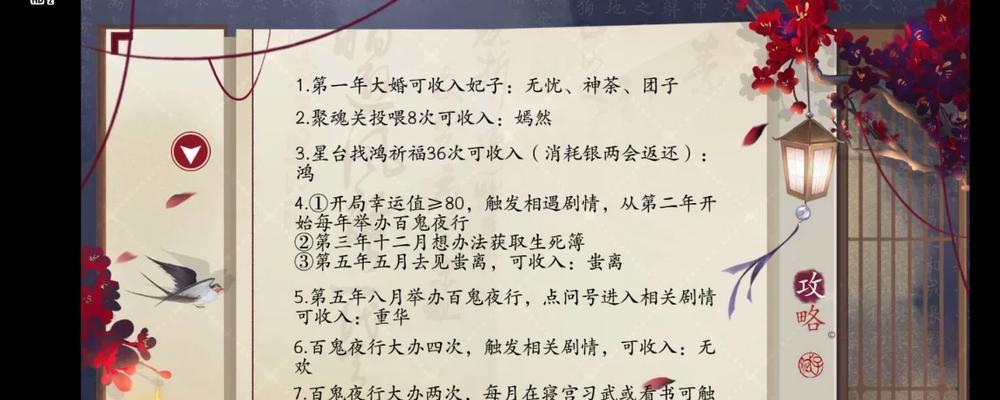 1.第一年大婚可收入妃子：无忧、神荼、团子
2.聚魂关投喂8次可收入：嫣然
3.星台找鸿祈福36次可收入（消耗银两会返还）：
鸿
4.①开局幸运值≥80，触发相遇剧情，从第二年开
始每年举办百鬼夜行
②第三年十二月想办法获取生死簿
③第五年五月去见蚩离，可收入：蚩离
5.第五年八月举办百鬼夜行，点问号进入相关剧情
可收入：重华
6.百鬼夜行大办四次，触发相关剧情，可收入：无
欢
7.百鬼夜行大办两次，每月在寝宫习武或看书可触
攻略